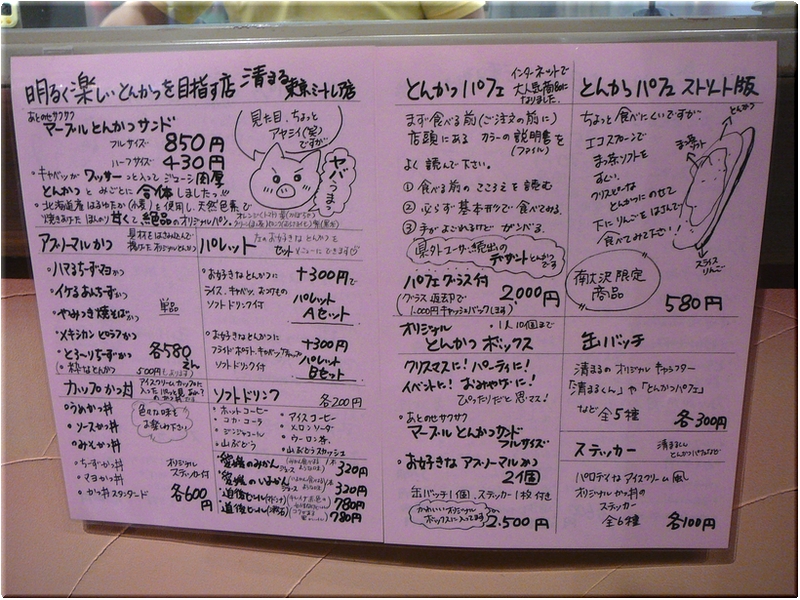 明るく楽しいとんかつを目指す店 清まる 東京ミートレア店
あとのせサクサク
マーブルとんかつサンド
フルサイズ 850円
ハーフサイズ 430円
見た目、ちょっと
アヤシイ(笑)
ですが…
ヤバうまっ
・キャベツがワッサーっと入ってジューシー肉厚
とんかつとみごとに合体しましたっ!!
・北海道産はるゆたか(小麦)を使用し、天然色素で
焼きあげた ほんのり甘くて絶品のオリジナルパン。
アブノーマルかつ
具材をはさみ込んで
揚げたオリジナルとんかつ
・ハマるちーずマヨかつ
・イケるあんちーずかつ
・やみつき焼そばかつ
・メキシカンピロシアかつ
・とろ〜りちーずかつ
単品
各580えん
(・粋なとんかつ 500円になります)
パレット
左のお好きなとんかつを
セットメニューにできます
・お好きなとんかつに +300円で
ライス、キャベツ、おつけもの
ソフトドリンク付
パレット
Aセット
・お好きなとんかつに +300円
フライドポテト、キャベツカップ
ソフトドリンク付
パレット
Bセット
カップかつ丼
アイスクリームカップに
色々な味を
お楽しみ下さい
・うめかつ丼
・ソースかつ丼
・みそかつ丼
・ちーずかつ丼
・マヨかつ丼
・かつ丼スタンダード
オリジナル
ステッカー付
各600円
ソフトドリンク 各200円
・ホットコーヒー
・コカ・コーラ
・ジンジャエール
・山ぶどう
・アイスコーヒー
・メロンソーダ
・ウーロン茶
・山ぶどうスカッシュ
・愛媛のみかんジュース 320円
・愛媛のいよかんジュース 320円
・道後ビール 780円
・道後ビール 780円
とんかつパフェ
インターネットで
大人気商品に
なりました。
まず食べる前(ご注文の前)に
店頭にある カラーの説明書を
(ファイル)
よく読んで下さい。
①食べる前のこころえを読む
②必らず基本形で食べてみる
③手がよごれるけどガンバる。
県外ユーザー続出の
デザートとんかつです
パフェグラス付 2,000円
(グラス返却で
1,000円キャッシュバックします)
オリジナル ・1人10個まで
とんかつボックス
クリスマスに!パーティに!
イベントに!おみやげに!
ぴったりだと思マス!
・あとのせサクサク
マーブルとんかつサンド
フルサイズ
・お好きなアブノーマルかつ
2個
缶バッチ1個、ステッカー1枚付き
かわいいオリジナル
ボックスに入ってます
2,500円
とんかつパフェ ストリート版
ちょっと食べにくいですが、
エコスプーンで
まっ茶ソフトを
すくい、
クリスピーな
とんかつにのせて
下にりんごをはさんで
食べてみて下さい!
とんかつ
まっ茶ソフト
スライス
りんご
南大沢限定
商品
580円
缶バッチ
清まるのオリジナルキャラクター
「清まるくん」や「とんかつパフェ」
など 全5種 各300円
ステッカー
清まるくん
とんかつパフェなど
パロディなアイスクリーム風
オリジナルかつ丼の
ステッカー
全6種 各100円